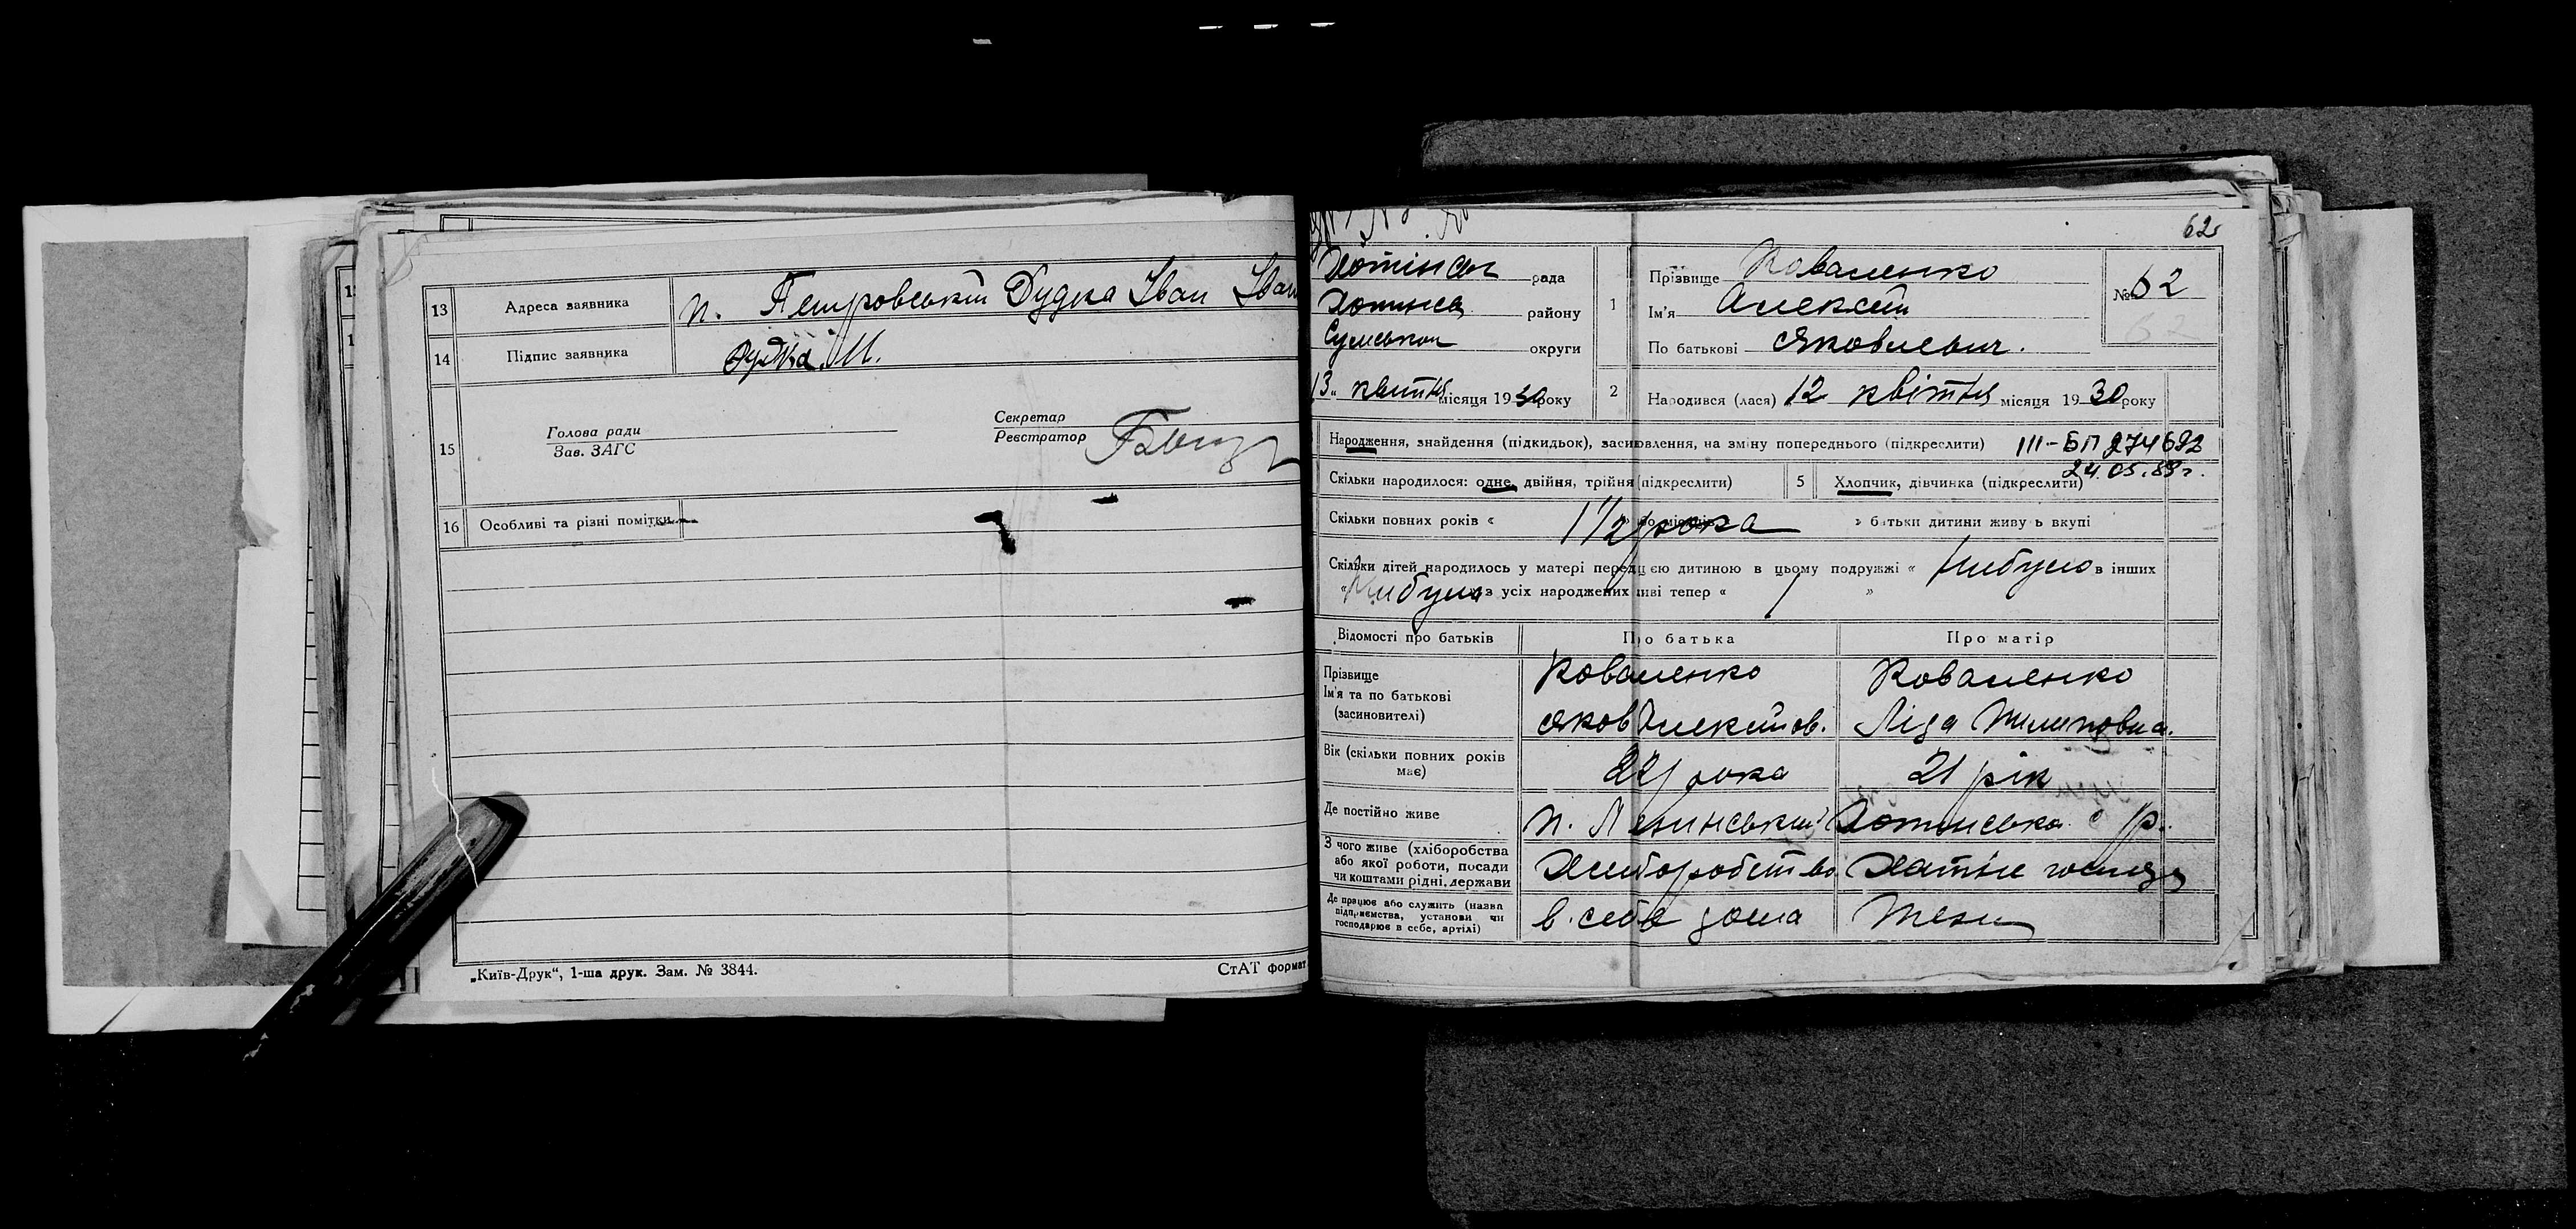 13 Адреса заявника п. Петровський Дудка Іван Іван
14 Підпис заявника Дудка И.
Секретар
Голова ради Реєстратор
15 Зав. ЗАГС
16 Особливі та різні помітки
„Київ-Друк“, 1-ша друк. Зам. № 3844. СтАТ формат
62
рада
району
Сумської округи
13 квітня місяця 1930 року
1 Прізвище Коваленко
Ім'я Алексій
По батькові Яковлевич.
№ 62
62
2 Народився (лася) 12 квітня місяця 1930 року
Народження, знайдення (підкидьок), засиновлення, на зміну попереднього (підкреслити) III-БП 274692
24.05.89г.
Скільки народилося: одне, двійня, трійня (підкреслити) 5 Хлопчик, дівчинка (підкреслити)
Скільки повних років « 1 1/2 рока » батьки дитини живуть вкупі
Скільки дітей народилось у матері перед цією дитиною в цьому подружжі « Нибуло в інших
« Нибуло з усіх народжених живі тепер « / »
Відомості про батьків Про батька Про матір
Прізвище Коваленко Коваленко
Ім'я та по батькові
(засиновителі) Яков Алексійов. Ліда Пилиповна.
Вік (скільки повних років має) 22 рока 21 рік
Де постійно живе п. Ленинський Хотинської р.
З чого живе (хліборобства
або якої роботи, посади
чи коштами рідні, держави Хліборобство Хатнє
Де працює або служить (назва
підприємства, установи чи
господарює в себе, артілі) в себе дома